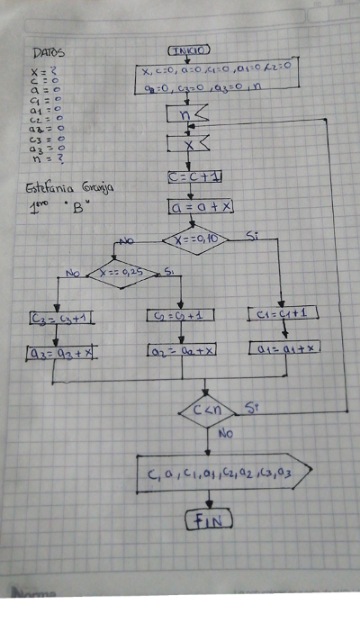 DATOS
x = ?
c = 0
a = 0
c1 = 0
a1 = 0
c2 = 0
a2 = 0
c3 = 0
a3 = 0
n = ?
Estefania Granja
1ero "B"
INICIO
x, c=0, a=0, c1=0, a1=0, c2=0
a2=0, c3=0, a3=0, n
n
x
c = c+1
a = a+x
x==0,10
No
Si
x==0,25
No
Si
c3=c3+1
c2=c2+1
c1=c1+1
a3=a3+x
a2=a2+x
a1=a1+x
c<n
Si
No
c, a, c1, a1, c2, a2, c3, a3
FIN
Norma